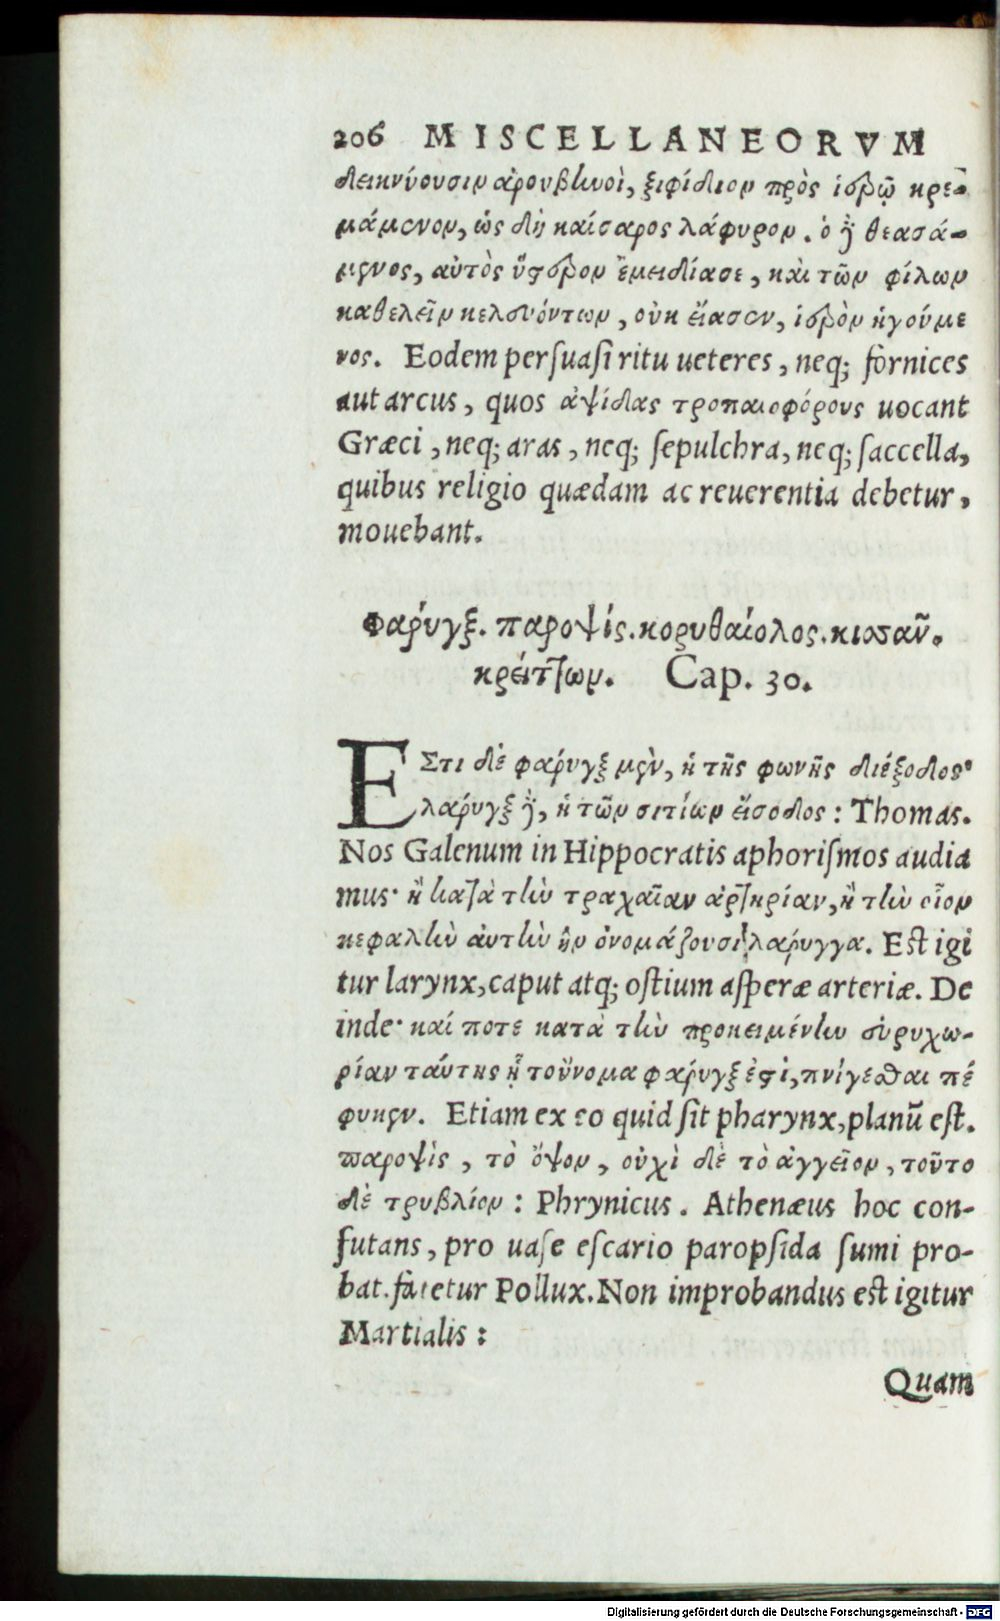 206 MISCELLANEORVM
δεικνύουσιν ἀρουβηνοὶ, ξιφίδιον πρὸς ἱερῷ κρε-
μάμενον, ὡς δὴ καίσαρος λάφυρον. ὁ δὲ θεασά-
μενος, αὐτὸς ὕστερον ἐμειδίασε, καὶ τῶν φίλων
καθελεῖν κελευόντων, οὐκ εἴασεν, ἱερὸν ἡγούμε
νος. Eodem persuasi ritu ueteres, neq; fornices
aut arcus, quos ἁψίδας τροπαιοφόρους uocant
Græci, neq; aras, neq; sepulchra, neq; saccella,
quibus religio quædam ac reuerentia debetur,
mouebant.
Φαρύγξ. παροψίς. κορυθαίολος. κισσᾶν.
κρείττων. Cap. 30.
EΣτι δὲ φαρύγξ μὲν, ἡ τῆς φωνῆς διέξοδος·
λαρύγξ δὲ, ἡ τῶν σιτίων εἴσοδος: Thomas.
Nos Galenum in Hippocratis aphorismos audia
mus· ἢ κατὰ τὴν τραχεῖαν ἀρτηρίαν, ἢ τὴν οἷον
κεφαλὴν αὐτὴν ἣν ὀνομάζουσι λαρυγγα. Est igi
tur larynx, caput atq; ostium asperæ arteriæ. De
inde· καί ποτε κατὰ τὴν προκειμένην εὐρυχω-
ρίαν ταύτης ᾗ τοὔνομα φαρύγξ ἐστὶ, πνίγεσθαι πέ
φυκεν. Etiam ex eo quid sit pharynx, planũ est.
παροψὶς, τὸ ὄψον, οὐχὶ δὲ τὸ ἀγγεῖον, τοῦτο
δὲ τρυβλίον: Phrynicus. Athenæus hoc con-
futans, pro uase escario paropsida sumi pro-
bat. fatetur Pollux. Non improbandus est igitur
Martialis:
Quam
Digitalisierung gefördert durch die Deutsche Forschungsgemeinschaft - DFG